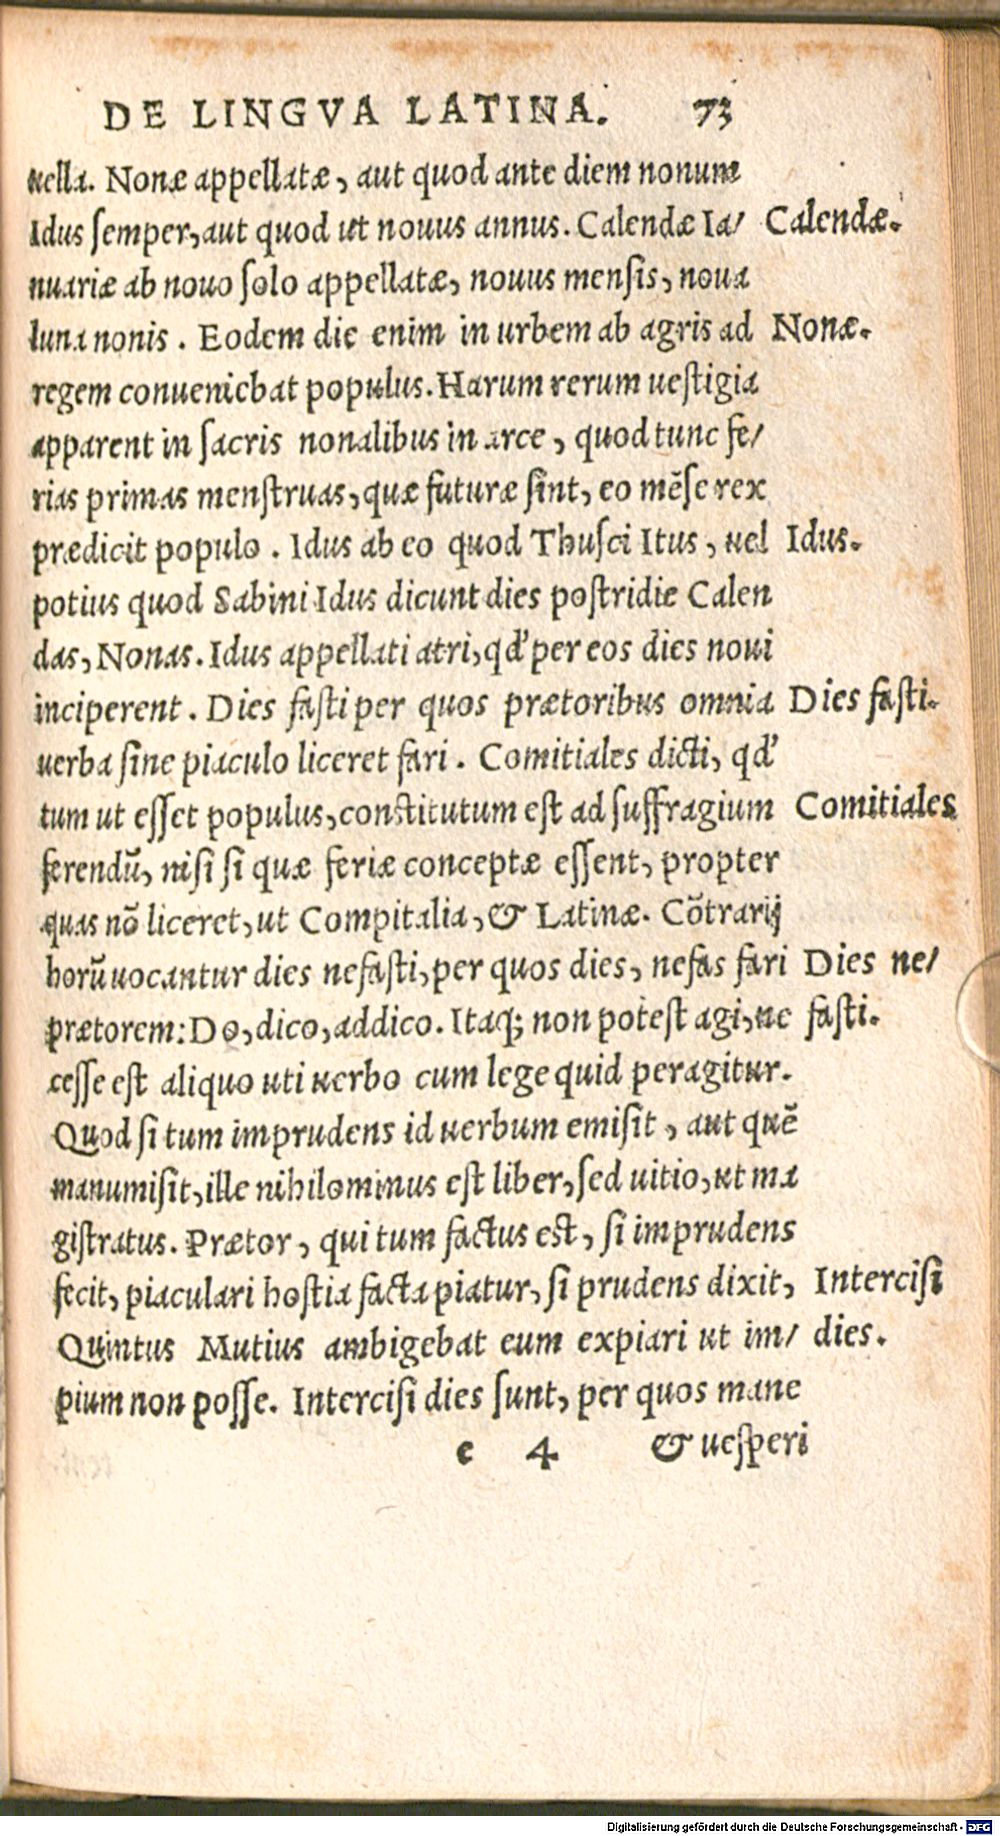 DE LINGVA LATINA. 73
uella. Nonæ appellatæ, aut quod ante diem nonum
Idus semper, aut quod ut nouus annus. Calendæ Ia/ Calendæ.
nuariæ ab nouo solo appellatæ, nouus mensis, noua
luna nonis. Eodem die enim in urbem ab agris ad Nonæ.
regem conueniebat populus. Harum rerum uestigia
apparent in sacris nonalibus in arce, quod tunc fe/
rias primas menstruas, quæ futuræ sint, eo mēse rex
prædicit populo. Idus ab eo quod Thusci Itus, uel Idus.
potius quod Sabini Idus dicunt dies postridie Calen
das, Nonas. Idus appellati atri, qđ per eos dies noui
inciperent. Dies fasti per quos prætoribus omnia Dies fasti.
uerba sine piaculo liceret fari. Comitiales dicti, qđ
tum ut esset populus, constitutum est ad suffragium Comitiales
ferendū, nisi si quæ feriæ conceptæ essent, propter
quas nō liceret, ut Compitalia, & Latinæ. Cōtrarij
horū uocantur dies nefasti, per quos dies, nefas fari Dies ne/
prætorem: Do, dico, addico. Itaq; non potest agi, ne fasti.
cesse est aliquo uti uerbo cum lege quid peragitur.
Quod si tum imprudens id uerbum emisit, aut quē
manumisit, ille nihilominus est liber, sed uitio, ut ma
gistratus. Prætor, qui tum factus est, si imprudens
fecit, piaculari hostia facta piatur, si prudens dixit, Intercisi
Quintus Mutius ambigebat eum expiari ut im/ dies.
pium non posse. Intercisi dies sunt, per quos mane
e 4 & uesperi
Digitalisierung gefördert durch die Deutsche Forschungsgemeinschaft - DFG